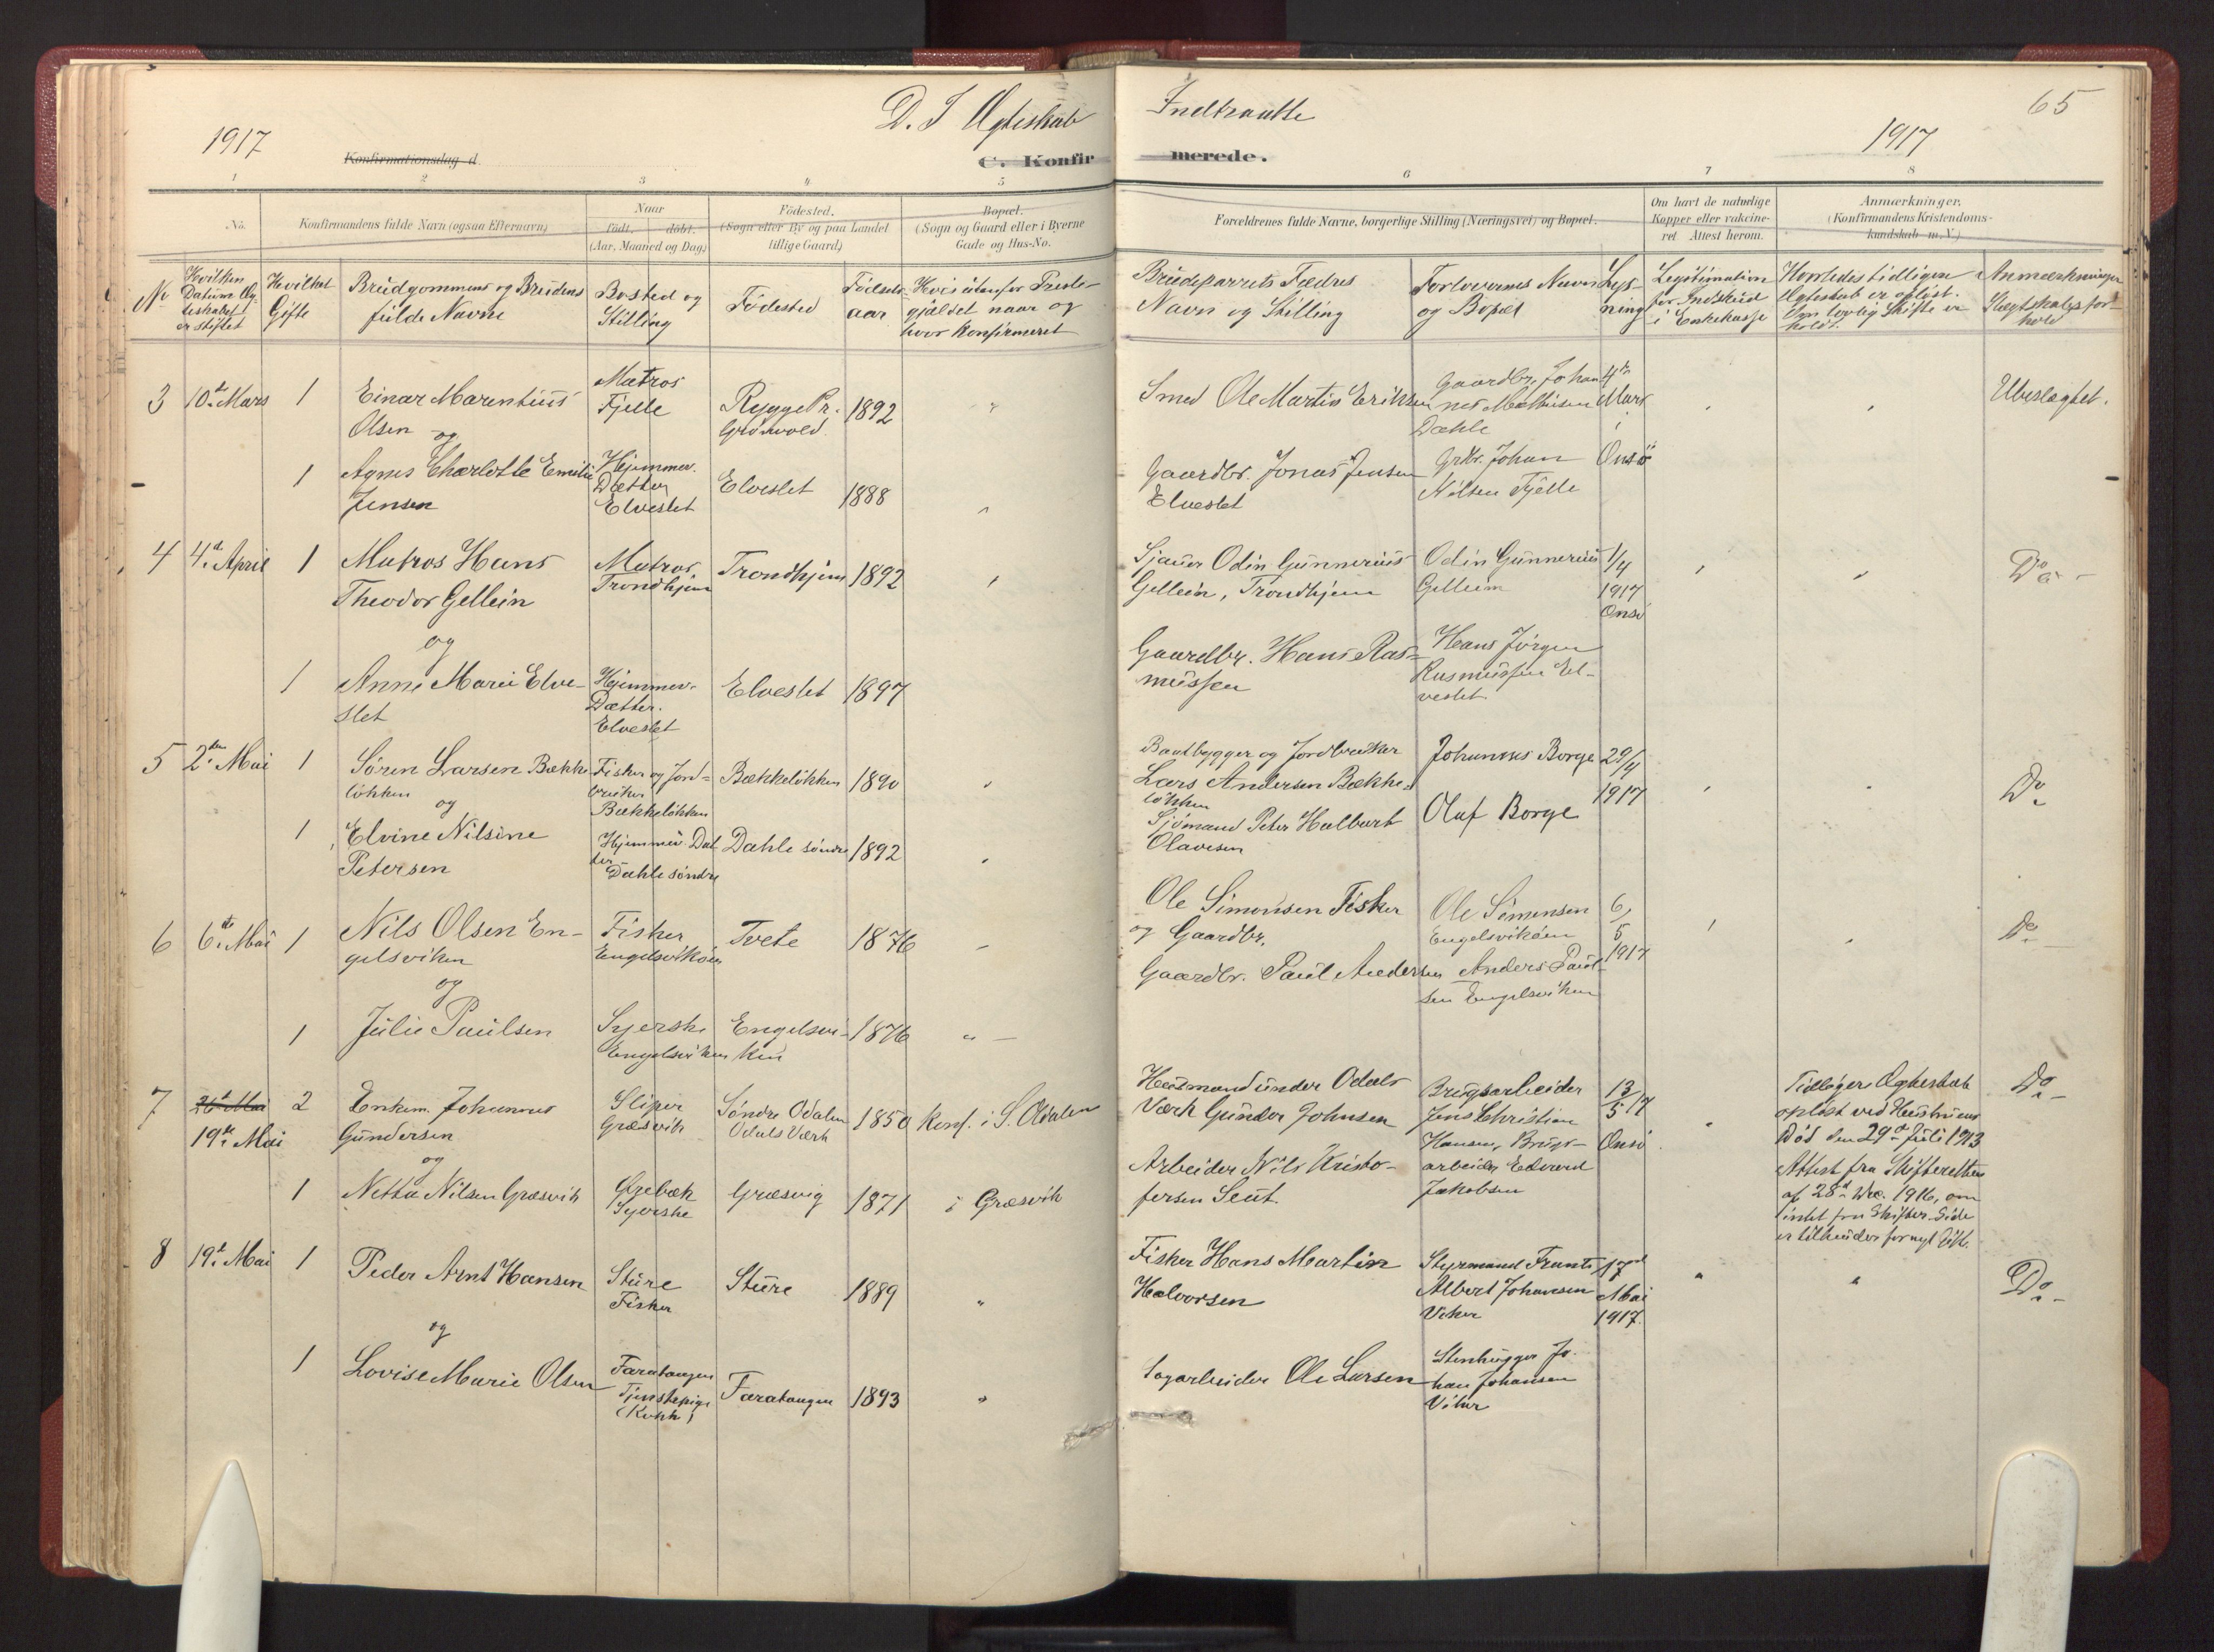 D. I Ægteskab Indtraadte
65
1917
1917
Konfirmationsdag d.
C. Konfirmerede.
1 2 3 4 5 6 7 8
No.
Konfirmandens fulde Navn (ogsaa Efternavn)
Naar
født. døbt.
(Aar, Maaned og Dag)
Fødested.
(Sogn eller By og paa Landet
tillige Gaard)
Bopæl.
(Sogn og Gaard eller i Byerne
Gade og Hus-No.
Forældrenes fulde Navne, borgerlige Stilling (Næringsvei) og Bopæl.
Om havt de naturlige
Kopper eller vakcine-
ret. Attest herom.
Anmærkninger.
(Konfirmandens Kristendoms-
kundskab m. V.)
No
Hvilken
Datum Æg-
teskabet
er stiftet
Hvilket
Gifte
Brudgommens og Brudens
fulde Navne
Bosted og
Stilling
Fødested
Fødsels-
aar
Hvis udenfor Preste-
gjældet naar og
hvor konfirmeret
Brudeparrets Fædres
Navn og Stilling
Forlovernes Navn
og Bopæl
Lys-
ning
Legitimation
for Indskud
i Enkekasse
Hvorledes tidligere
Ægteskab er opløst.
Om lovlig Skifte er
holdt.
Anmærkninger
Slegtskabsfor-
hold
3
10de Mars
1
Einar Marentius
Olsen
og
Matros
Fjelle
Rygge Pr.
Grønvold
1892
"
Smed Ole Martin Eriksen
Gaardbr. Johan
nes Mathisen
Dahle
4de
Mars
i
Onsø
Ubeslægtet.
1
Agnes Charlotte Emilie
Jensen
Hjemmev.
Datter
Elveslet
Elveslet
1888
"
Gaardbr. Jonas Jensen
Elveslet
Grbr. Johan
Nilsen Fjelle
4
4d. April
1
Matros Hans
Theodor Gellein
og
Matros
Trondhjem
Trondhjem
1892
"
Sjauer Odin Gunnerius
Gellein, Trondhjem
Odin Gunnerius
Gellein
1/4
1917
Onsø
Do
1
Anne Marie Elve-
slet
Hjemmev.
Datter.
Elveslet
Elveslet
1897
Gaardbr. Hans Ras-
mussen
Hans Jørgen
Rasmussen El-
veslet
5
2den Mai
1
Søren Larsen Bække
løkken
og
Fisker og Jord-
bruker
Bækkeløkken
Bækkeløkken
1890
"
Baatbygger og Jordbruker
Lars Andersen Bække-
løkken
Johannes Borge
29/4
1917
Do
1
Elvine Nilsine
Petersen
Hjemmev. Dat
ter
Dahle søndre
Dahle søndre
1892
"
Sjømand Peter Halbart
Olavesen
Olaf Borge
6
6te Mai
1
Nils Olsen En-
gelsviken
og
Fisker
Engelsviken
Tvete
1876
"
Ole Simonsen Fisker
og Gaardbr.
Ole Simonsen
Engelsviken
6/5
1917
Do
1
Julie Paulsen
Syerske
Engelsviken
Engelsvi-
ken
1876
"
Gaardbr. Paul Andersen
Anders Paul-
sen Engelsviken
7
26d Mai
19de Mai
2
Enkem. Johannes
Gundersen
og
Sliper
Græsvik
Søndre Odalen
Odals Værk
1850
Konf. i S. Odalen
Husmand under Odals
Værk Gunder Johnsen
Brugsarbeider
Jens Christian
Hansen, Brugs-
arbeider Edvard
Jakobsen
13/5 17
Onsø
"
Tidligere Ægteskab
opløst ved Hustruens
Død den 29d Juli 1913
Attest fra Skifteretten
af 28d Dec. 1916, om
intet fra Skifter. Side
er tilhinder for nyt Ægt.
Do
1
Netta Nilsen Græsvik
Ørebæk
Syerske
Græsvig
1871
i Græsvik
Arbeider Nils Kristo-
fersen Seut.
8
19d. Mai
1
Peder Arnt Hansen
og
Sture
Fisker
Sture
1889
"
Fisker Hans Martin
Halvorsen
Styrmand Frants
Albert Johansen
Viker
17d
Mai
1917.
"
"
Do
1
Lovise Marie Olsen
Faratangen
Tjenstepige
(Kokk)
Faratangen
1893
"
Sagarbeider Ole Larsen
Stenhugger Jo-
han Johansen
Viker